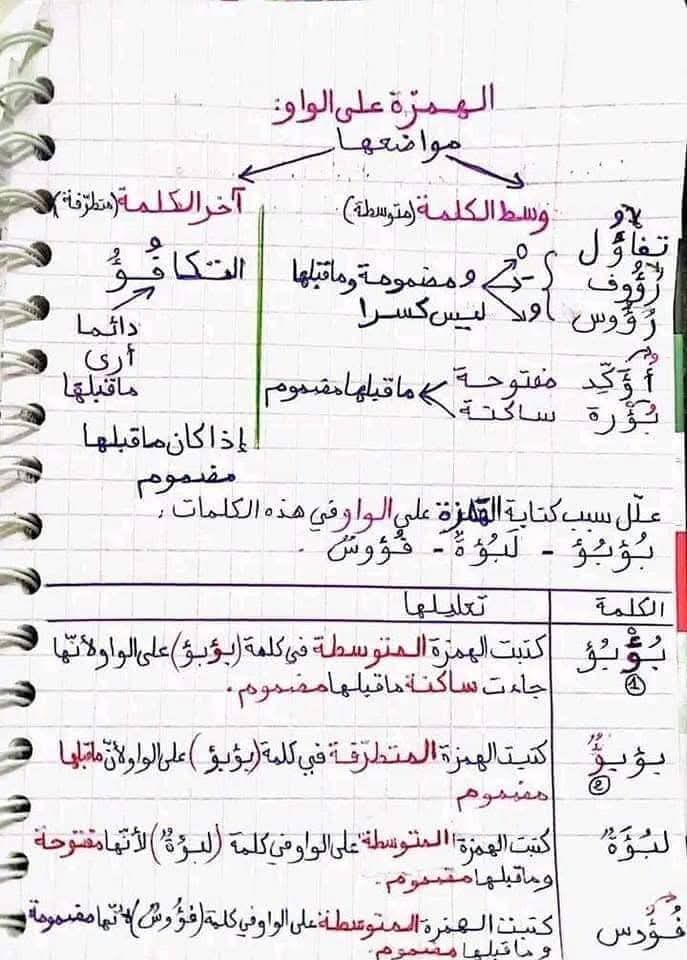 الهمزة على الواو:
مواضعها
وسط الكلمة (متوسطة)
تفاؤل
رؤوف
رؤوس
مضمومة وما قبلها
ليس كسرا
أؤكّد مفتوحة
بؤرة ساكنة
ما قبلها مضموم
آخر الكلمة (متطرّفة)
التكافُؤُ
دائما
أرى
ما قبلها
إذا كان ما قبلها
مضموم
علّل سبب كتابة الهمزة على الواو في هذه الكلمات:
بُؤْبُؤ - لَبُؤَةٌ - فُؤُوسٌ.
الكلمة تعليلها
بُؤْبُؤ كتبت الهمزة المتوسطة في كلمة (بؤبؤ) على الواو لأنّها
① جاءت ساكنة ما قبلها مضموم.
بؤبؤ كتبت الهمزة المتطرّفة في كلمة (بؤبؤ) على الواو لأنّ ما قبلها
② مضموم
لَبُؤَةٌ كتبت الهمزة المتوسطة على الواو في كلمة (لبؤةٌ) لأنّها مفتوحة
وما قبلها مضموم.
فُؤُوس كتبت الهمزة المتوسطة على الواو في كلمة (فؤُوسٌ) لأنّها مضمومة
وما قبلها مضموم.